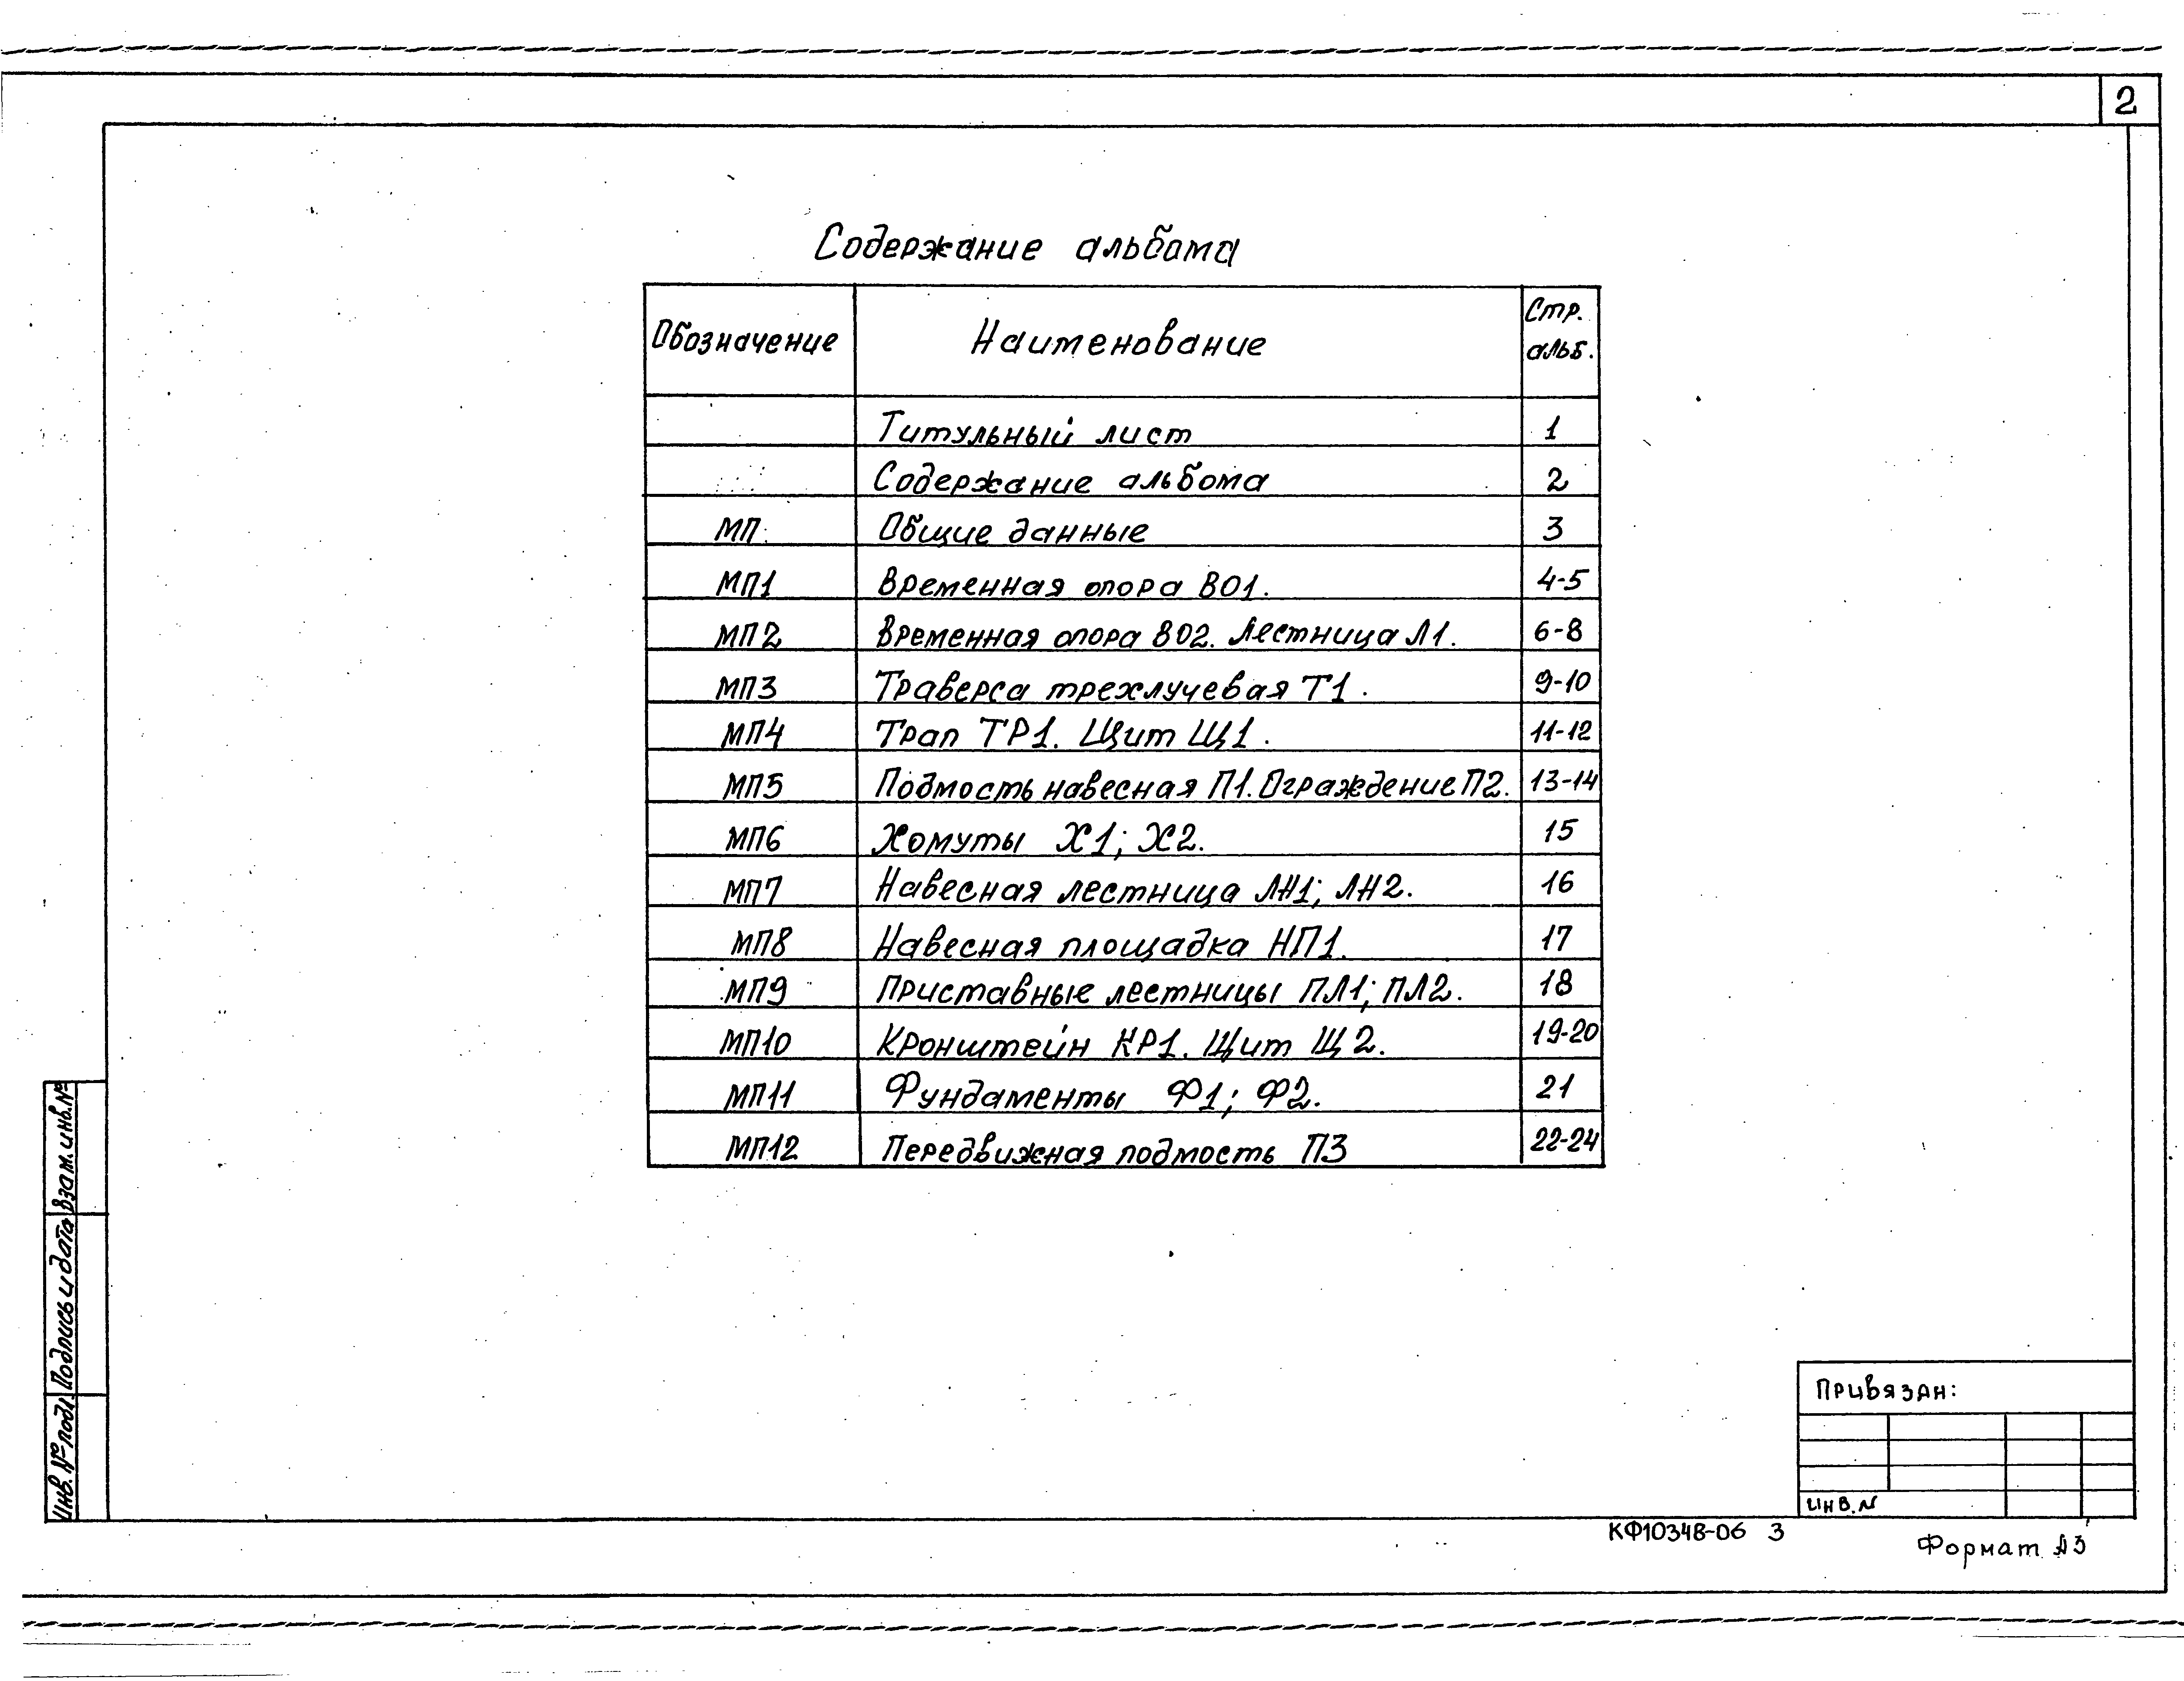 2
Содержание альбома
Обозначение Наименование Стр. альб.
Титульный лист 1
Содержание альбома 2
МП Общие данные 3
МП1 Временная опора ВО1. 4-5
МП2 Временная опора ВО2. Лестница Л1. 6-8
МП3 Траверса трехлучевая Т1. 9-10
МП4 Трап ТР1. Щит Щ1. 11-12
МП5 Подмость навесная П1. Ограждение П2. 13-14
МП6 Хомуты Х1; Х2. 15
МП7 Навесная лестница ЛН1; ЛН2. 16
МП8 Навесная площадка НП1. 17
МП9 Приставные лестницы ПЛ1; ПЛ2. 18
МП10 Кронштейн КР1. Щит Щ2. 19-20
МП11 Фундаменты Ф1; Ф2. 21
МП12 Передвижная подмость П3 22-24
Взам. инв. №
Подпись и дата
Инв. № подл.
Привязан:
Инв. N
КФ10348-06 3
Формат А3